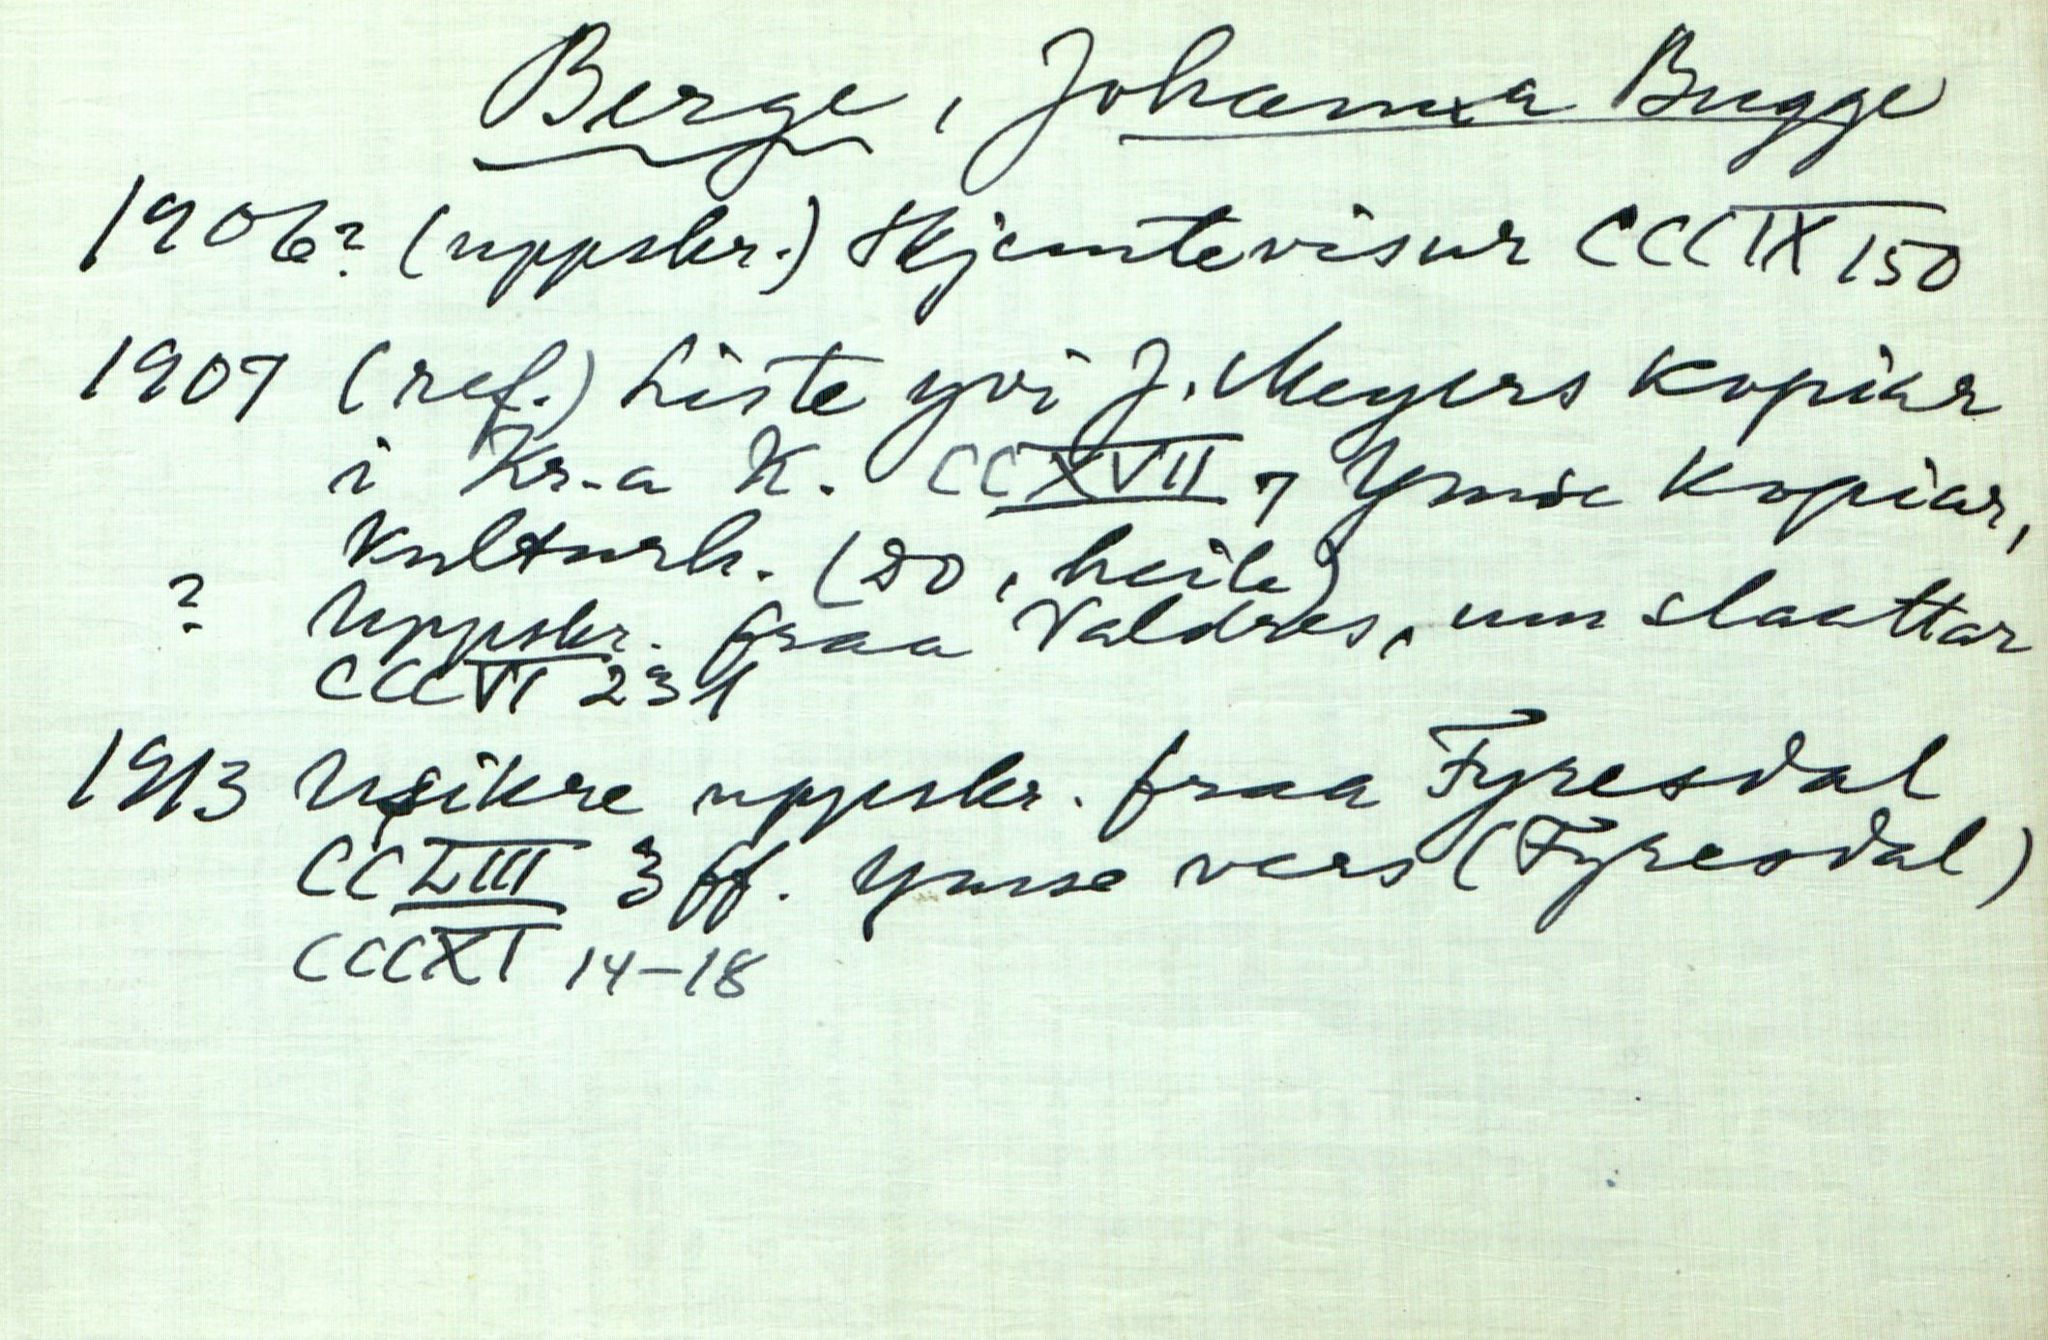 Berge, Johanna Bugge
1906? (uppskr.) Skjemtevisur CCCIX 150
1907 (ref.) Liste yvi J. Meyers kopiar
i Kr.a K. CCXVII 7 Ymse kopiar,
kulturh. (do, heile)
? Uppskr. fraa Valdres, um slaattar
CCCVI 231
1913 Usikre uppskr. fraa Fyresdal
CCLIII 3 ff. Ymse vers (Fyresdal)
CCCXI 14-18